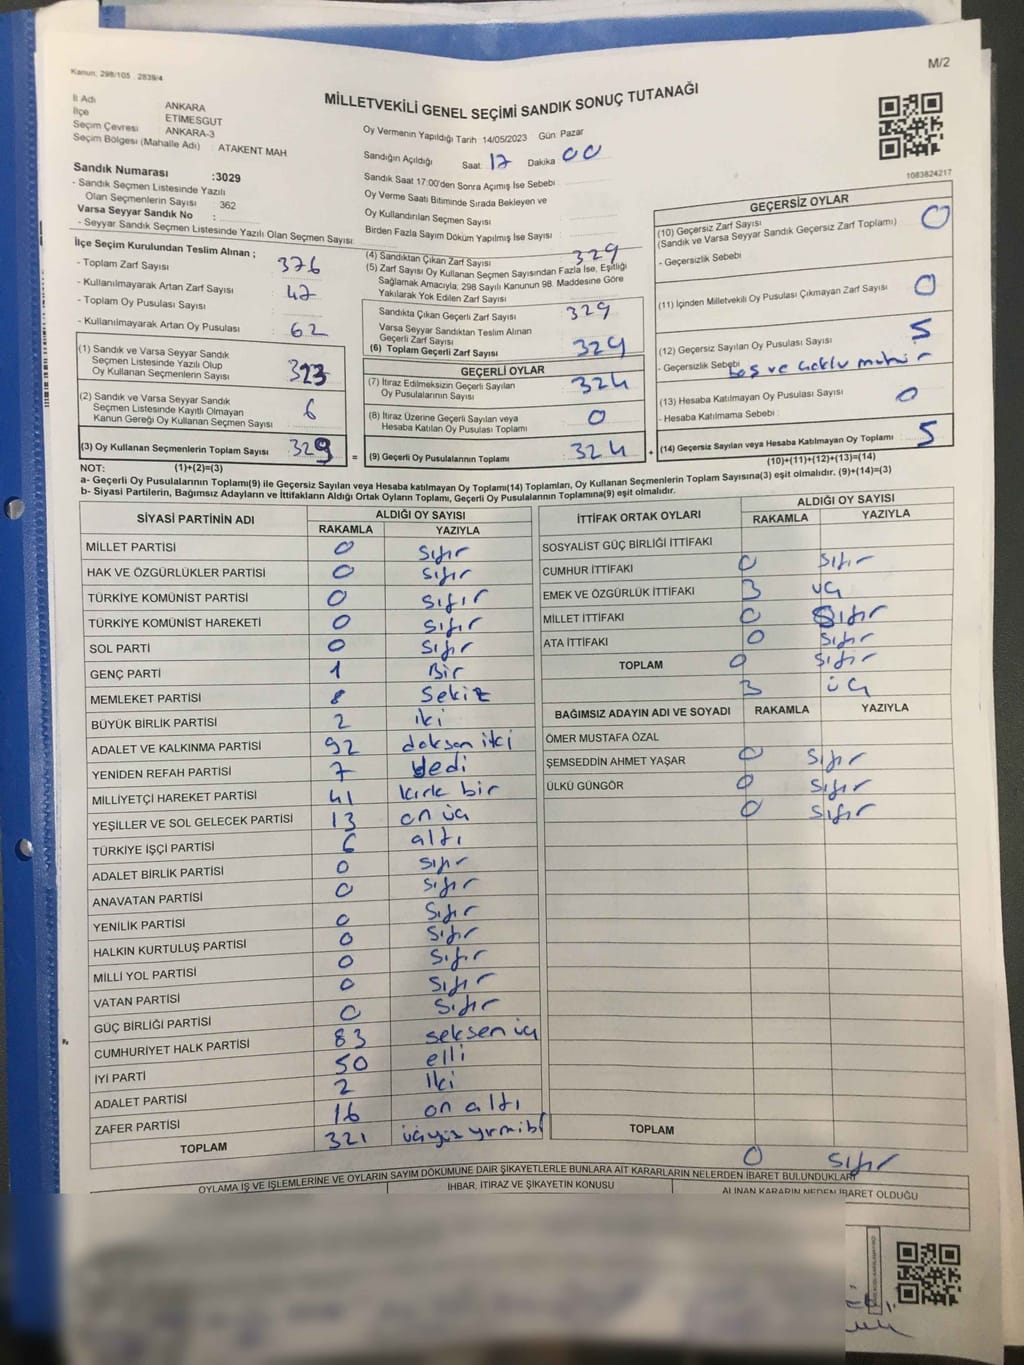 Kanun. 298/105 . 2839/4
M/2
MİLLETVEKİLİ GENEL SEÇİMİ SANDIK SONUÇ TUTANAĞI
İl Adı ANKARA
İlçe ETİMESGUT
Seçim Çevresi ANKARA-3
Seçim Bölgesi (Mahalle Adı) : ATAKENT MAH
Sandık Numarası :3029
- Sandık Seçmen Listesinde Yazılı
Olan Seçmenlerin Sayısı : 362
Varsa Seyyar Sandık No :
- Seyyar Sandık Seçmen Listesinde Yazılı Olan Seçmen Sayısı:
Oy Vermenin Yapıldığı Tarih 14/05/2023 Gün: Pazar
Sandığın Açıldığı Saat 17 Dakika 00
Sandık Saat 17:00'den Sonra Açımış İse Sebebi
Oy Verme Saati Bitiminde Sırada Bekleyen ve
Oy Kullandırılan Seçmen Sayısı
Birden Fazla Sayım Döküm Yapılmış İse Sayısı
1083824217
İlçe Seçim Kurulundan Teslim Alınan ;
- Toplam Zarf Sayısı 376
- Kullanılmayarak Artan Zarf Sayısı 47
- Toplam Oy Pusulası Sayısı
- Kullanılmayarak Artan Oy Pusulası 62
(1) Sandık ve Varsa Seyyar Sandık
Seçmen Listesinde Yazılı Olup
Oy Kullanan Seçmenlerin Sayısı 323
(2) Sandık ve Varsa Seyyar Sandık
Seçmen Listesinde Kayıtlı Olmayan
Kanun Gereği Oy Kullanan Seçmen Sayısı 6
(3) Oy Kullanan Seçmenlerin Toplam Sayısı 329
(1)+(2)=(3)
(4) Sandıktan Çıkan Zarf Sayısı 329
(5) Zarf Sayısı Oy Kullanan Seçmen Sayısından Fazla İse, Eşitliği
Sağlamak Amacıyla; 298 Sayılı Kanunun 98. Maddesine Göre
Yakılarak Yok Edilen Zarf Sayısı
Sandıkta Çıkan Geçerli Zarf Sayısı 329
Varsa Seyyar Sandıktan Teslim Alınan
Geçerli Zarf Sayısı
(6) Toplam Geçerli Zarf Sayısı 329
GEÇERLİ OYLAR
(7) İtiraz Edilmeksizin Geçerli Sayılan
Oy Pusulalarının Sayısı 324
(8) İtiraz Üzerine Geçerli Sayılan veya
Hesaba Katılan Oy Pusulası Toplamı 0
= (9) Geçerli Oy Pusulalarının Toplamı 324 +
GEÇERSİZ OYLAR
(10) Geçersiz Zarf Sayısı 0
(Sandık ve Varsa Seyyar Sandık Geçersiz Zarf Toplamı)
- Geçersizlik Sebebi
(11) İçinden Milletvekili Oy Pusulası Çıkmayan Zarf Sayısı 0
(12) Geçersiz Sayılan Oy Pusulası Sayısı 5
- Geçersizlik Sebebi boş ve çoklu mühür
(13) Hesaba Katılmayan Oy Pusulası Sayısı 0
- Hesaba Katılmama Sebebi :
(14) Geçersiz Sayılan veya Hesaba Katılmayan Oy Toplamı 5
(10)+(11)+(12)+(13)=(14)
NOT:
a- Geçerli Oy Pusulalarının Toplamı(9) ile Geçersiz Sayılan veya Hesaba katılmayan Oy Toplamı(14) Toplamları, Oy Kullanan Seçmenlerin Toplam Sayısına(3) eşit olmalıdır. (9)+(14)=(3)
b- Siyasi Partilerin, Bağımsız Adayların ve İttifakların Aldığı Ortak Oyların Toplamı, Geçerli Oy Pusulalarının Toplamına(9) eşit olmalıdır.
SİYASİ PARTİNİN ADI ALDIĞI OY SAYISI
RAKAMLA YAZIYLA
MİLLET PARTİSİ 0 sıfır
HAK VE ÖZGÜRLÜKLER PARTİSİ 0 sıfır
TÜRKİYE KOMÜNİST PARTİSİ 0 sıfır
TÜRKİYE KOMÜNİST HAREKETİ 0 sıfır
SOL PARTİ 0 sıfır
GENÇ PARTİ 1 Bir
MEMLEKET PARTİSİ 8 Sekiz
BÜYÜK BİRLİK PARTİSİ 2 iki
ADALET VE KALKINMA PARTİSİ 92 doksan iki
YENİDEN REFAH PARTİSİ 7 Yedi
MİLLİYETÇİ HAREKET PARTİSİ 41 kırk bir
YEŞİLLER VE SOL GELECEK PARTİSİ 13 on üç
TÜRKİYE İŞÇİ PARTİSİ 6 altı
ADALET BİRLİK PARTİSİ 0 sıfır
ANAVATAN PARTİSİ 0 sıfır
YENİLİK PARTİSİ 0 sıfır
HALKIN KURTULUŞ PARTİSİ 0 sıfır
MİLLİ YOL PARTİSİ 0 sıfır
VATAN PARTİSİ 0 sıfır
GÜÇ BİRLİĞİ PARTİSİ 0 sıfır
CUMHURİYET HALK PARTİSİ 83 seksen üç
İYİ PARTİ 50 elli
ADALET PARTİSİ 2 İki
ZAFER PARTİSİ 16 on altı
TOPLAM 321 üçyüz yirmibi
İTTİFAK ORTAK OYLARI ALDIĞI OY SAYISI
RAKAMLA YAZIYLA
SOSYALİST GÜÇ BİRLİĞİ İTTİFAKI
CUMHUR İTTİFAKI 0 sıfır
EMEK VE ÖZGÜRLÜK İTTİFAKI 3 üç
MİLLET İTTİFAKI 0 sıfır
ATA İTTİFAKI 0 sıfır
TOPLAM 0 sıfır
3 üç
BAĞIMSIZ ADAYIN ADI VE SOYADI RAKAMLA YAZIYLA
ÖMER MUSTAFA ÖZAL
ŞEMSEDDİN AHMET YAŞAR 0 sıfır
ÜLKÜ GÜNGÖR 0 sıfır
0 sıfır
TOPLAM
0 sıfır
OYLAMA İŞ VE İŞLEMLERİNE VE OYLARIN SAYIM DÖKÜMÜNE DAİR ŞİKAYETLERLE BUNLARA AİT KARARLARIN NELERDEN İBARET BULUNDUKLARI
İHBAR, İTİRAZ VE ŞİKAYETİN KONUSU
ALINAN KARARIN NEDEN İBARET OLDUĞU